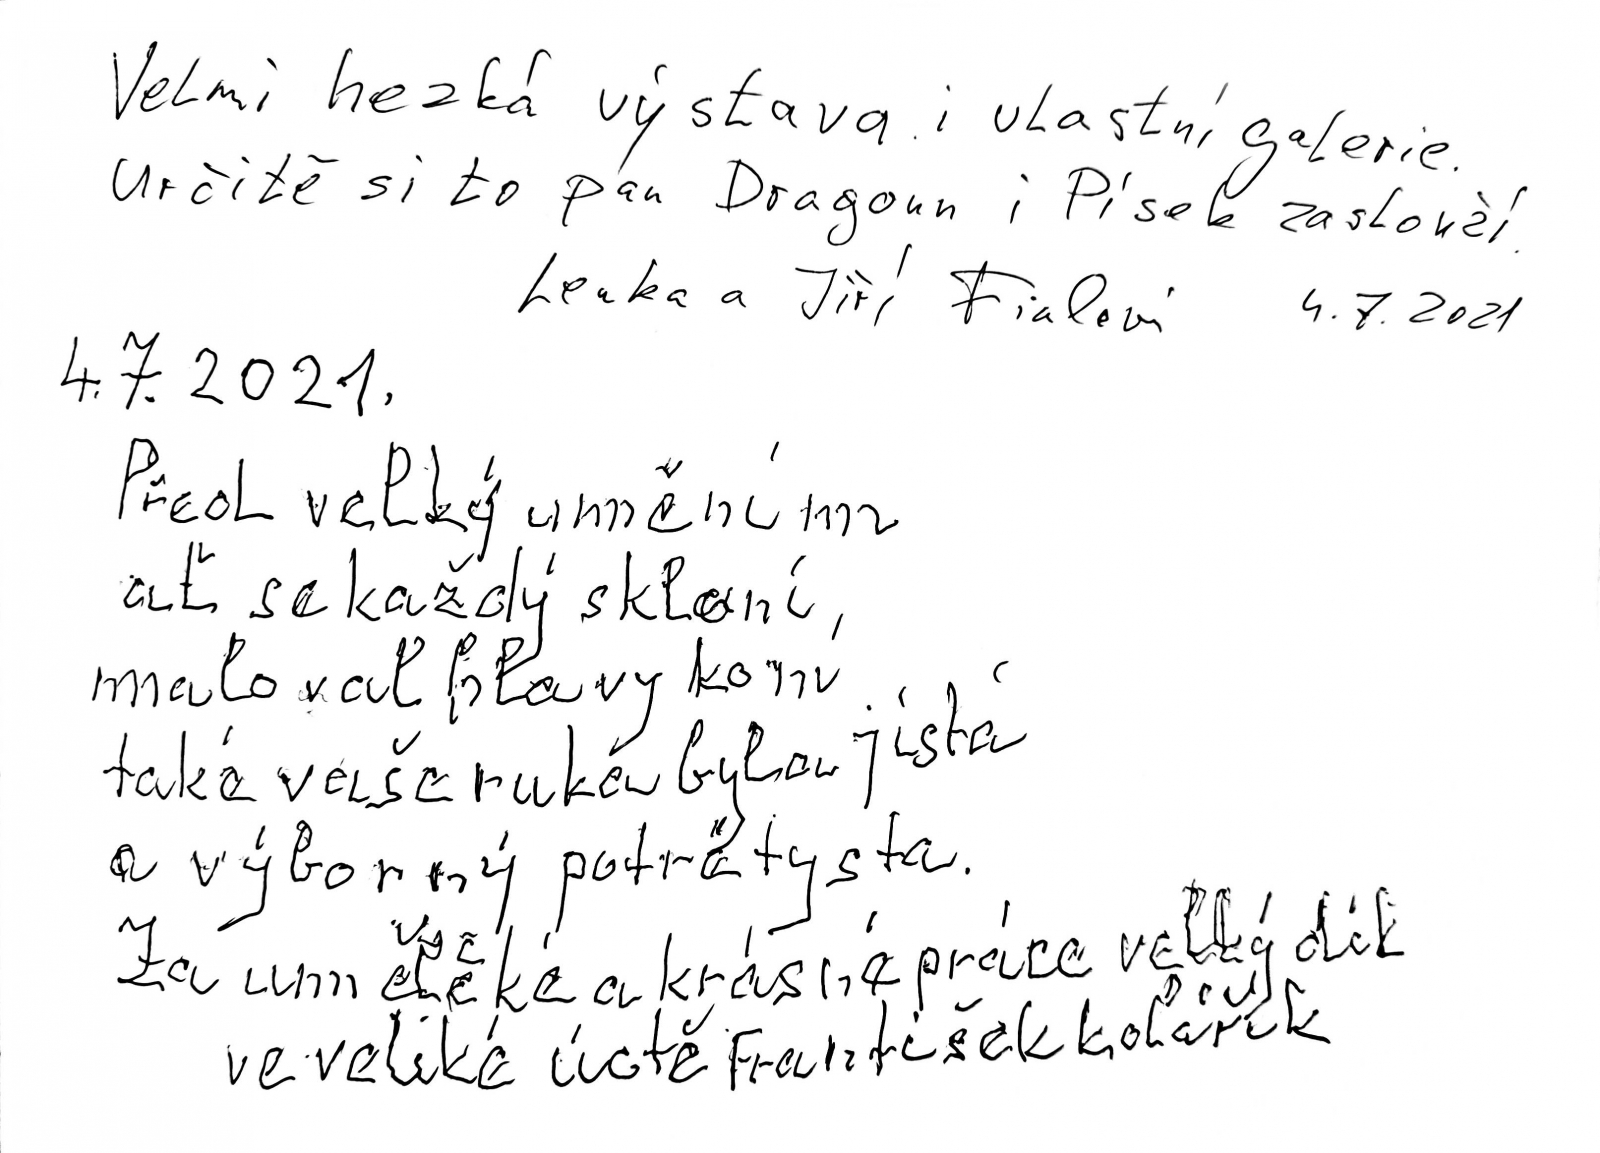 Velmi hezká výstava i vlastní galerie.
Určitě si to pan Dragoun i Písek zaslouží.
Lenka a Jiří Fialovi 4.7.2021
4.7.2021.
Před velký uměním
ať se každý skloní,
maloval hlavy koní
také vaše ruka byla jistá
a výborný potrétysta.
Za umělecké a krásné práce velký dík
ve veliké úctě František Kolářík